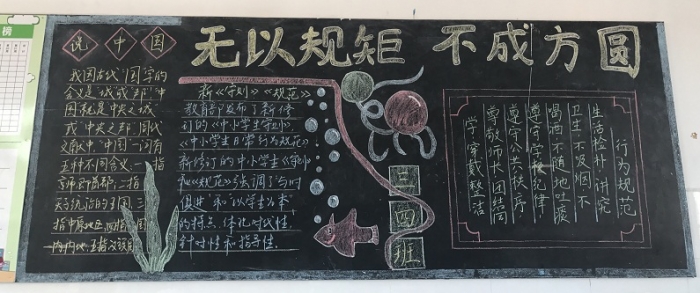 榜
无以规矩 不成方圆
说中国
我国古代"国"字的
含义是"城"或"邦""中
国"就是"中央之城"
或"中央之邦"周代
文献中"中国"一词有
五种不同含义:一指
京师即首都,二指
天子统治的王国,三
指中原地区,四指国
内内地,五指
新《守则》《规范》
教育部发布了新修
订的《中小学生守则》
《中小学生日常行为规范》
新修订的中小学生《守则》
和《规范》强调了与时
俱进和以学生为本
的特点,体现时代性
针对性和指导性
三
四
班
行为规范
生活检朴讲究
卫生不及烟不
喝酒不随地吐痰
遵守学校纪律
尊守公共秩序
尊敬师长团结
学 穿戴整洁